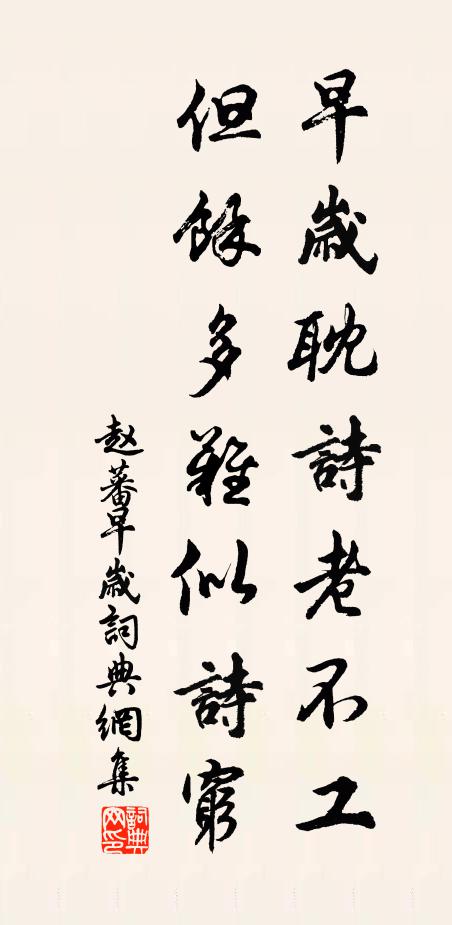 早歲耽詩老不工
但餘多難似詩窮
赵蕃早歲詞典網集
詞典网印